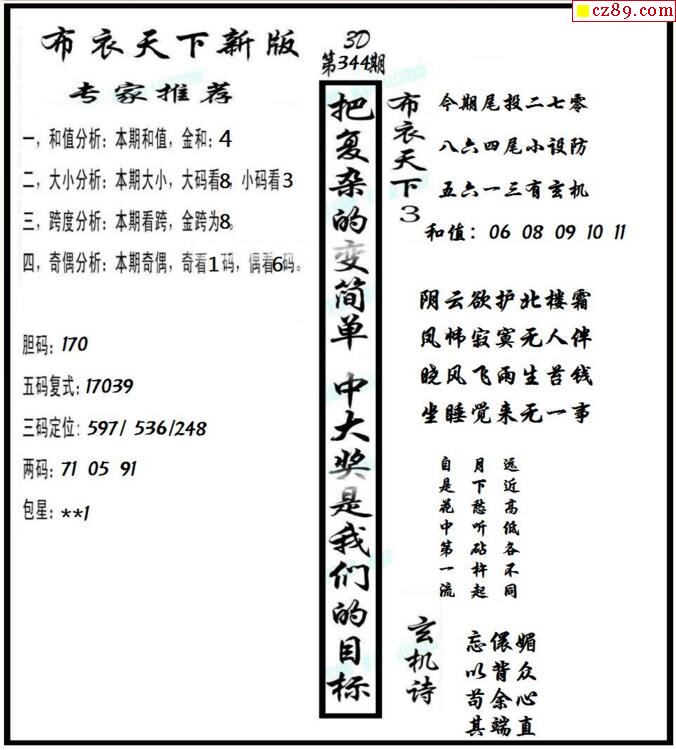 cz89.com
布衣天下新版
专家推荐
一，和值分析：本期和值，金和：4
二，大小分析：本期大小，大码看8，小码看3
三，跨度分析：本期看跨，金跨为8。
四，奇偶分析：本期奇偶，奇看1码，偶看6码。
胆码：170
五码复式：17039
三码定位：597/ 536/248
两码：71 05 91
包星：**1
3D
第344期
把复杂的变简单 中大奖是我们的目标
布衣天下3
今期尾投二七零
八六四尾小设防
五六一三有玄机
和值：06 08 09 10 11
阴云欲护北楼霜
凤帏寂寞无人伴
晓风飞雨生苔钱
坐睡觉来无一事
远近高低各不同
月下愁听砧杵起
自是花中第一流
玄机诗
忘儇媚
以背众
苟余心
其端直